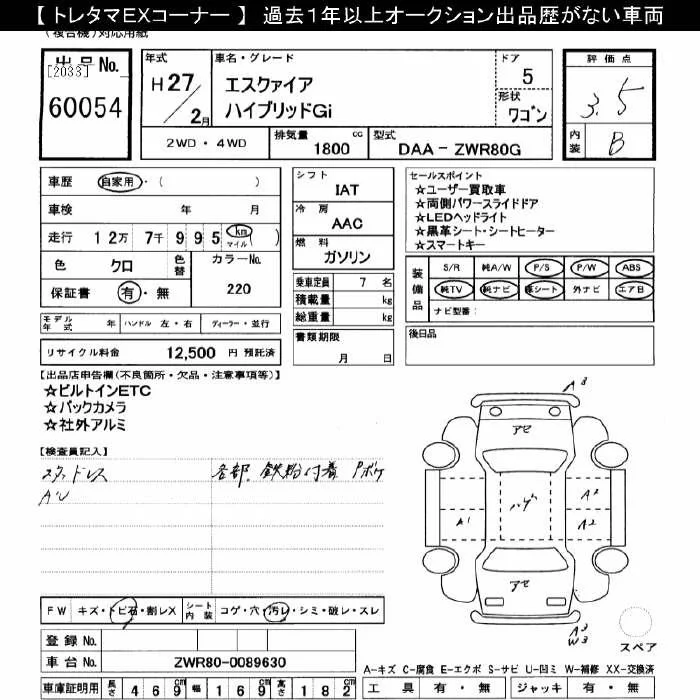 【 トレタマEXコーナー 】 過去1年以上オークション出品歴がない車両
(複合機)対応用紙
出品No.
[2033]
60054
年式
H 27 / 2月
車名・グレード
エスクァイア
ハイブリッドGi
ドア
5
形状
ワゴン
評価点
3.5
内装
B
2WD ・ 4WD
排気量
1800 cc
型式
DAA - ZWR80G
車歴 自家用・( )
車検 年 月
走行 12万 7千 9 9 5 km マイル ( )
色 クロ
色替
カラーNo.
220
保証書 有・無
シフト
IAT
冷房
AAC
燃料
ガソリン
乗車定員 7 名
積載量 kg
総重量 kg
セールスポイント
☆ユーザー買取車
☆両側パワースライドドア
☆LEDヘッドライト
☆黒革シート・シートヒーター
☆スマートキー
装備品
S/R 純A/W P/S P/W ABS
純TV 純ナビ 革シート 外ナビ エアB
ナビ型番:
モデル年式 年 ハンドル 左・右 ディーラー・並行
書類期限
月 日
後日品
リサイクル料金 12,500 円 預託済
【出品店申告欄(不良箇所・欠品・注意事項等)】
☆ビルトインETC
☆バックカメラ
☆社外アルミ
【検査員記入】
スタッドレス
A'U
各部、鉄粉付着 Pボケ
A3
アセ
ハゲ
A1
A2
A2
アセ
A3
W3
スペア
FW キズ・トビ石・割レX
シート内装 コゲ・穴・汚レ・シミ・破レ・スレ
登録 No.
車台 No. ZWR80-0089630
A-キズ C-腐食 E-エクボ S-サビ U-凹ミ W-補修 XX-交換済
車庫証明用 長さ 4 6 9 cm 幅 1 6 9 cm 高さ 1 8 2 cm
工具 有・無 ジャッキ 有・無